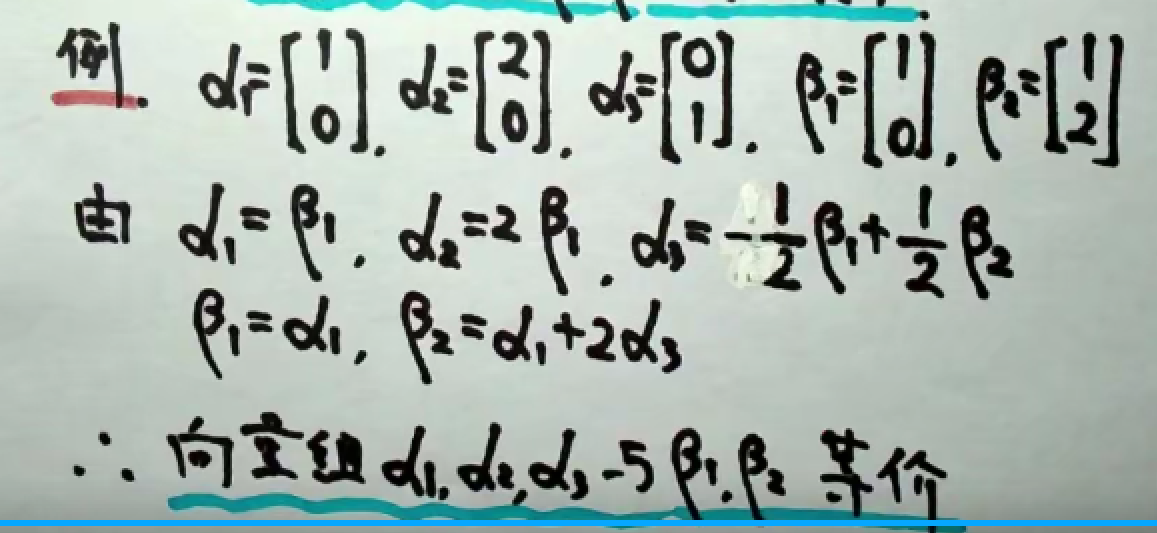 例. α₁=[1 0]. α₂=[2 0]. α₃=[0 1]. β₁=[1 0]. β₂=[1 2]
由 α₁=β₁. α₂=2β₁. α₃=-1/2β₁+1/2β₂
β₁=α₁, β₂=α₁+2α₃
∴ 向量组α₁,α₂,α₃与β₁.β₂等价